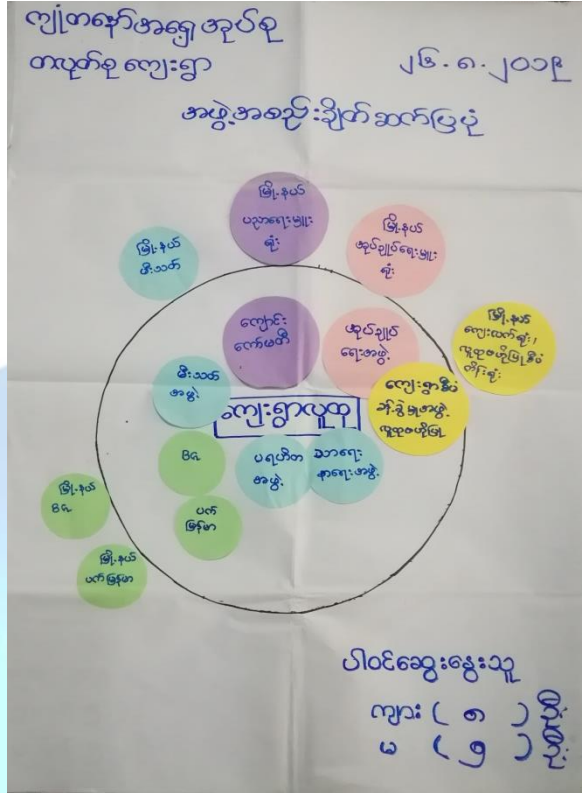 ကျုံတနော်အရှေ့အုပ်စု
တလုတ်စု ကျေးရွာ
၂၆.၈.၂၀၁၉
အဖွဲ့အစည်းချိတ်ဆက်ပြပုံ
မြို့နယ်
ပညာရေးမှူး
ရုံး
မြို့နယ်
အုပ်ချုပ်ရေးမှူး
ရုံး
မြို့နယ်
မီးသတ်
ကျောင်း
ကော်မတီ
အုပ်ချုပ်
ရေးအဖွဲ့
မြို့နယ်
ကျေးလက်ရုံး၊
လူထုဗဟိုပြုစီမံ
ကိန်းရုံး
မီးသတ်
အဖွဲ့
ကျေးရွာစီမံ
လူထုဗဟိုပြု
ကျေးရွာလူထု
ပရဟိတ
အဖွဲ့
သာရေး
နာရေးအဖွဲ့
ပတ်
မြန်မာ
မြို့နယ်
မြို့နယ်
ပတ်မြန်မာ
ပါဝင်ဆွေးနွေးသူ
ကျား ( ၈ ) ဦး
မ ( ၅ ) ဦး